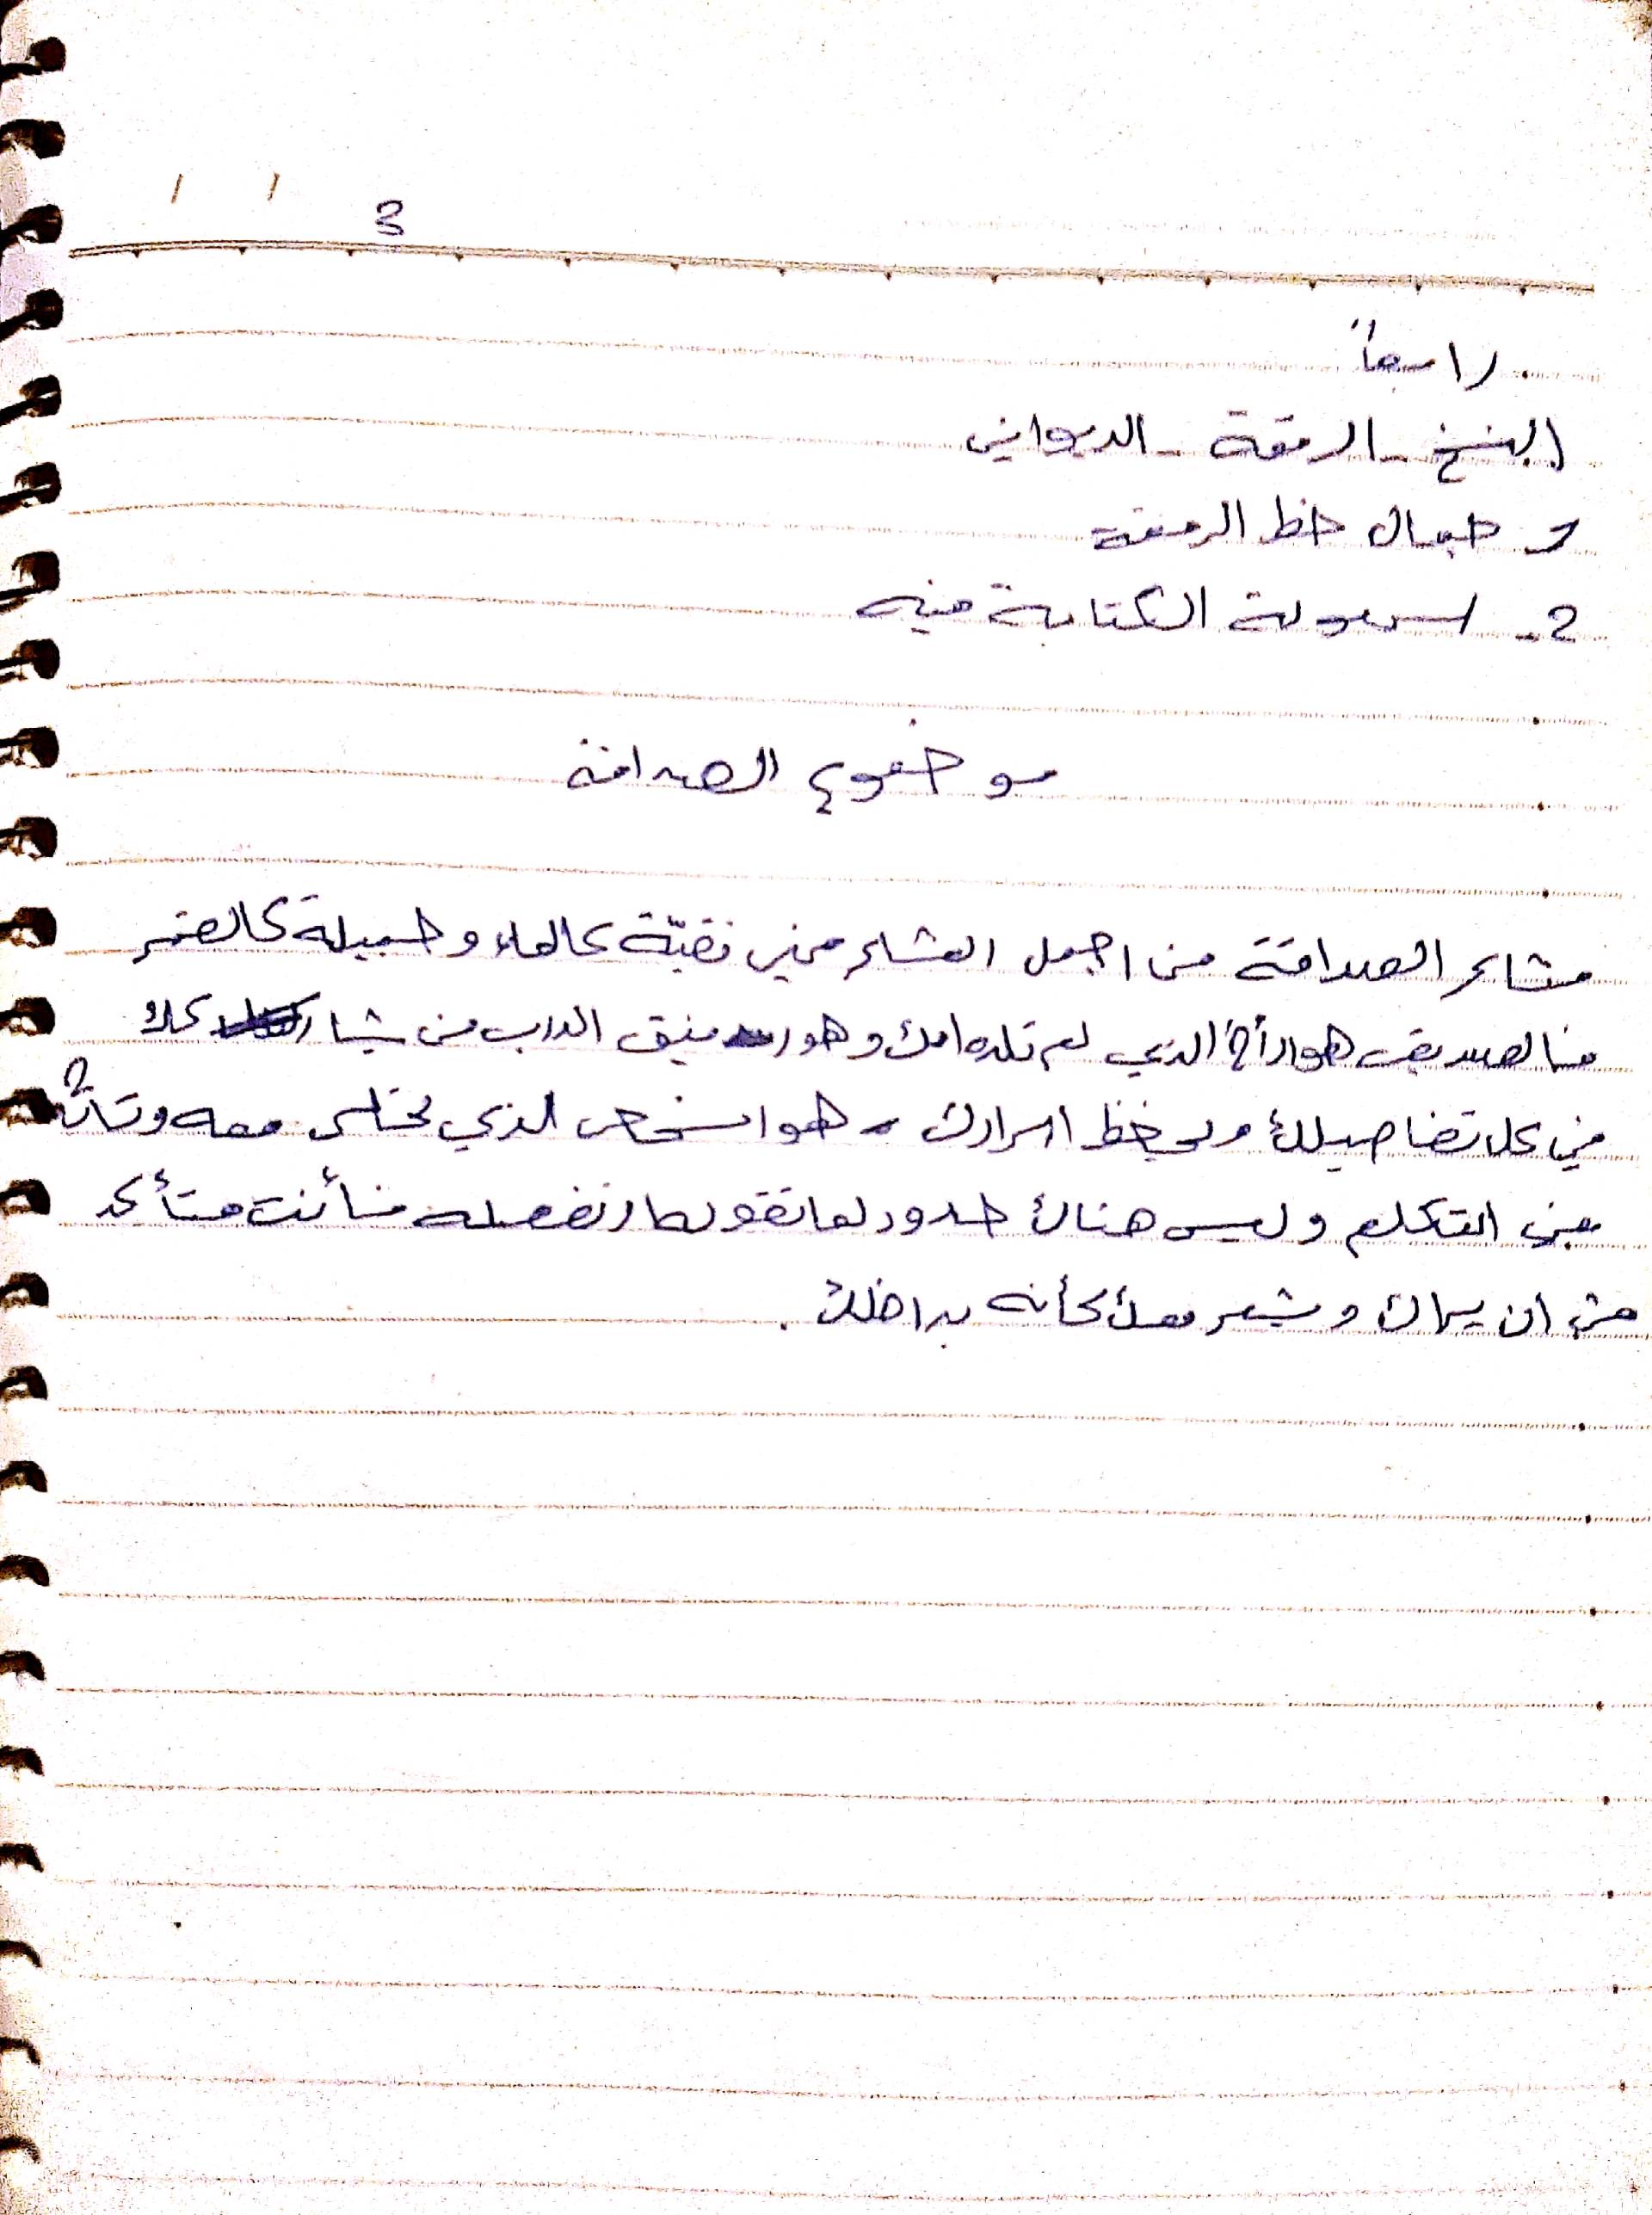 3
رابعاً
النسخ - الرقعة - الديواني
1- جمال خط الرقعة
2- سهولة الكتابة فيه
موضوع الصداقة
مشاعر الصداقة من اجمل المشاعر فهي نقيّة كالماء وجميلة كالقمر
فالصديق هو الأخ الذي لم تلده امك وهو رفيق الدرب من يشاركك
في كل تفاصيلك ويحفظ اسرارك - هو الشخص الذي تجلس معه
التكلم وليس هناك حدود لما تقوله او تفعله فأنت متأكد
من ان يراك ويشعر معك كأنه بداخلك .